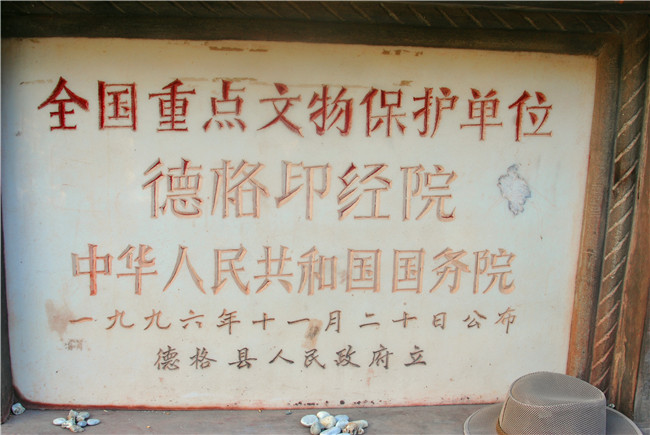 全国重点文物保护单位
德格印经院
中华人民共和国国务院
一九九六年十一月二十日公布
德格县人民政府立